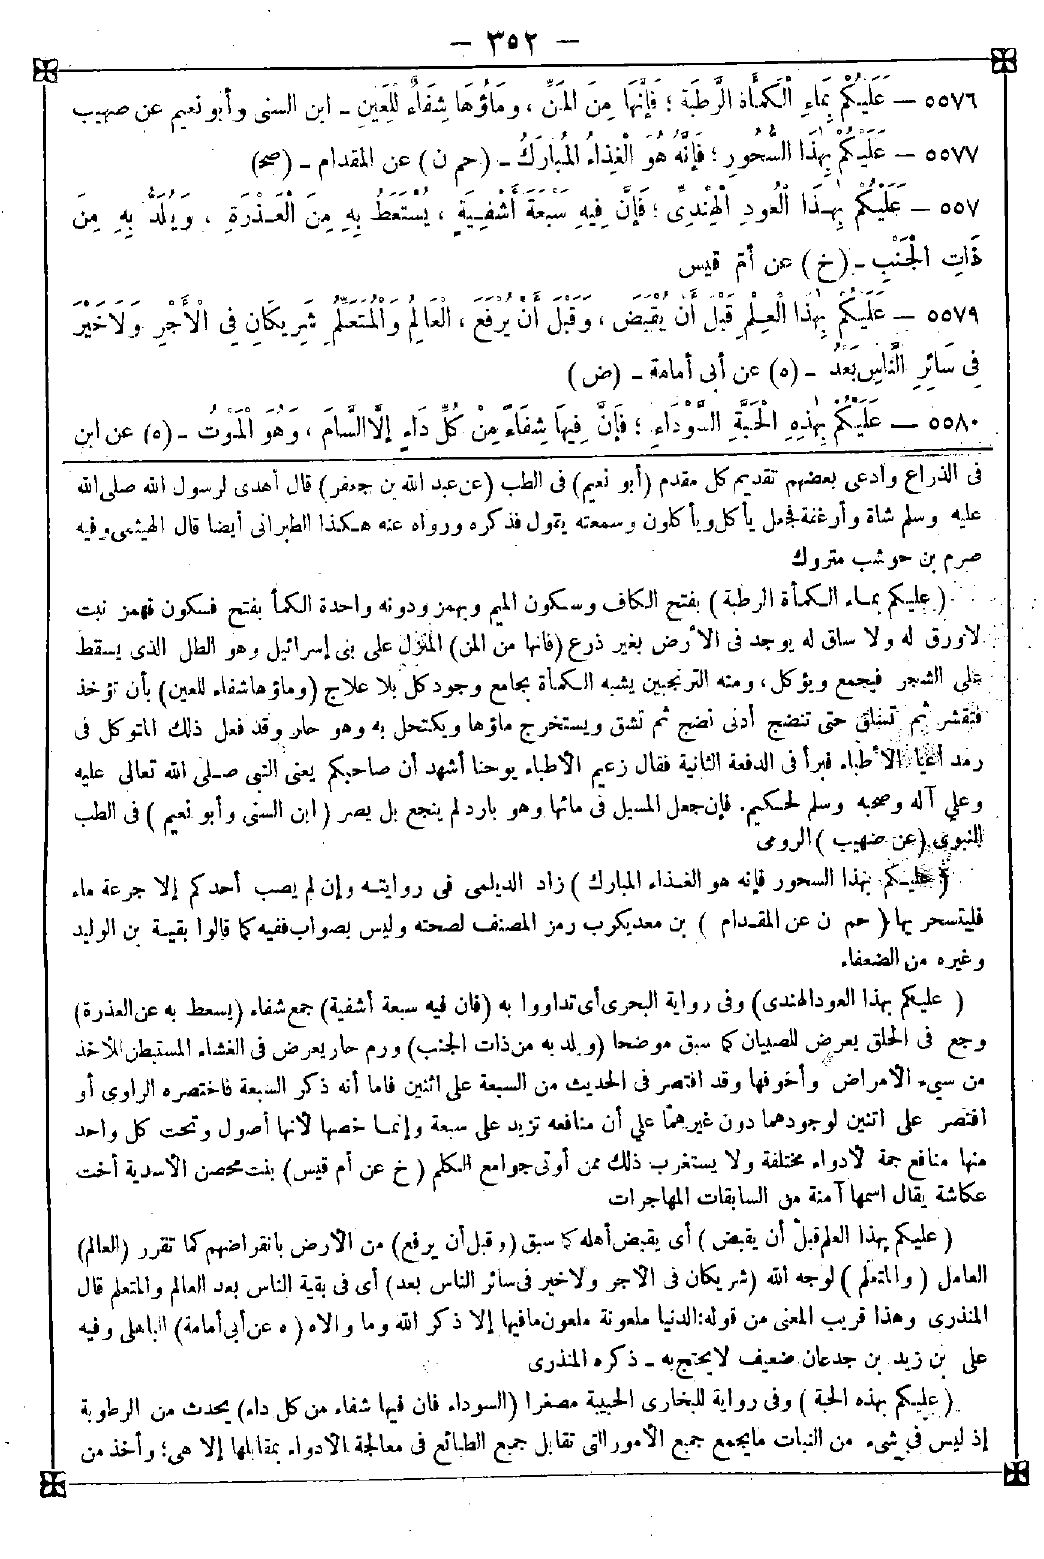 — ٣٥٢ —
٥٥٧٦ — عَلَيْكُمْ بِمَاءِ الْكَمْأَةِ الرَّطْبَةِ ؛ فَإِنَّهَا مِنَ الْمَنِّ ، وَمَاؤُهَا شِفَاءٌ لِلْعَيْنِ - ابن السنى وأبو نعيم عن صهيب
٥٥٧٧ — عَلَيْكُمْ بِهٰذَا السَّحُورِ ؛ فَإِنَّهُ هُوَ الْغِذَاءُ الْمُبَارَكُ - (حم ن) عن المقدام - (صح)
٥٥٧ — عَلَيْكُمْ بِهٰذَا الْعُودِ الْهِنْدِىِّ ؛ فَإِنَّ فِيهِ سَبْعَةَ أَشْفِيَةٍ ، يُسْتَعَطُ بِهِ مِنَ الْعُذْرَةِ ، وَيُلَدُّ بِهِ مِنَ
ذَاتِ الْجَنْبِ - (خ) عن أم قيس
٥٥٧٩ — عَلَيْكُمْ بِهٰذَا الْعِلْمِ قَبْلَ أَنْ يُقْبَضَ ، وَقَبْلَ أَنْ يُرْفَعَ ، الْعَالِمُ وَالْمُتَعَلِّمُ شَرِيكَانِ فِى الْأَجْرِ وَلَا خَيْرَ
فِى سَائِرِ النَّاسِ بَعْدُ - (ه) عن أبى أمامة - (ض)
٥٥٨٠ — عَلَيْكُمْ بِهٰذِهِ الْحَبَّةِ السَّوْدَاءِ ؛ فَإِنَّ فِيهَا شِفَاءً مِنْ كُلِّ دَاءٍ إِلَّا السَّامَ ، وَهُوَ الْمَوْتُ - (ه) عن ابن
فى الذراع وادعى بعضهم تقديم كل مقدم (أبو نعيم) فى الطب (عن عبد الله بن جعفر) قال أهدى لرسول الله صلى الله
عليه وسلم شاة وأرغفة فجعل يأكل ويأكلون وسمعته يقول فذكره ورواه عنه هكذا الطبرانى أيضا قال الهيثمى وفيه
صرم بن حوشب متروك
(عليكم بماء الكمأة الرطبة) بفتح الكاف وسكون الميم وبهمز ودونه واحدة الكمأ بفتح فسكون فهمز نبت
لاورق له ولا ساق له يوجد فى الأرض بغير ذرع (فانها من المن) المنزل على بنى إسرائيل وهو الطل الذى يسقط
على الشجر فيجمع ويؤكل ، ومنه الترنجبين يشبه الكمأة بجامع وجود كل بلا علاج (وماؤها شفاء للعين) بأن تؤخذ
فتقشر ثم تسلق حتى تنضج أدنى نضج ثم تشق ويستخرج ماؤها ويكتحل به وهو حار وقد فعل ذلك المتوكل فى
رمد أعيا الأطباء فبرأ فى الدفعة الثانية فقال زعيم الأطباء يوحنا أشهد أن صاحبكم يعنى النبى صلى الله تعالى عليه
وعلى آله وصحبه وسلم لحكيم. فإن جعل الميل فى مائها وهو بارد لم ينجع بل يضر (ابن السنى وأبو نعيم) فى الطب
النبوى (عن صهيب) الرومى
(عليكم بهذا السحور فإنه هو الغذاء المبارك) زاد الديلمى فى روايته وإن لم يصب أحدكم إلا جرعة ماء
فليتسحر بها (حم ن عن المقدام) بن معديكرب رمز المصنف لصحته وليس بصواب ففيه كما قالوا بقية بن الوليد
وغيره من الضعفاء
(عليكم بهذا العود الهندى) وفى رواية البحرى أى تداووا به (فان فيه سبعة أشفية) جمع شفاء (يسعط به عن العذرة)
وجع فى الحلق يعرض للصبيان كما سبق موضحا (ويلد به من ذات الجنب) ورم حار يعرض فى الغشاء المستبطن للأخذ
من سيىء الأمراض وأخوفها وقد اقتصر فى الحديث من السبعة على اثنين فاما أنه ذكر السبعة فاختصره الراوى أو
اقتصر على اثنين لوجودهما دون غيرهما على أن منافعه تزيد على سبعة وإنما خصها لأنها أصول وتحت كل واحد
منها منافع جمة لأدواء مختلفة ولا يستغرب ذلك ممن أوتى جوامع الكلم (خ عن أم قيس) بنت محصن الأسدية أخت
عكاشة يقال اسمها آمنة من السابقات المهاجرات
(عليكم بهذا العلم قبل أن يقبض) أى يقبض أهله كما سبق (وقبل أن يرفع) من الأرض بانقراضهم كما تقرر (العالم)
العامل (والمتعلم) لوجه الله (شريكان فى الاجر ولاخير فى سائر الناس بعد) أى فى بقية الناس بعد العالم والمتعلم قال
المنذرى وهذا قريب المعنى من قوله:الدنيا ملعونة ملعون مافيها إلا ذكر الله وما والاه (ه عن أبى أمامة) الباهلى وفيه
على بن زيد بن جدعان ضعيف لايحتج به - ذكره المنذرى
(عليكم بهذه الحبة) وفى رواية للبخارى الحبيبة مصغرا (السوداء فان فيها شفاء من كل داء) يحدث من الرطوبة
إذ ليس فى شىء من النبات مايجمع جميع الأمور التى تقابل جميع الطبائع فى معالجة الادواء بمقابلها إلا هى؛ وأخذ من